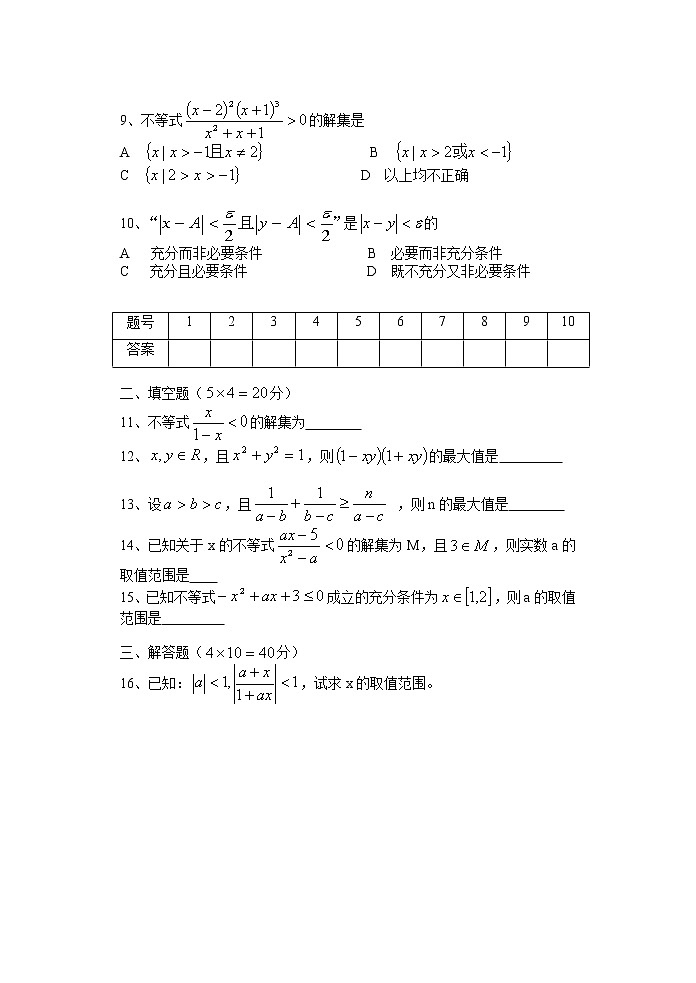 9、不等式 $\frac{(x-2)^2(x+1)^3}{x^2+x+1}>0$ 的解集是
A {x | x > -1且x ≠ 2} B {x | x > 2或x < -1}
C {x | 2 > x > -1} D 以上均不正确
10、“$|x-A|<\frac{\varepsilon}{2}$ 且 $|y-A|<\frac{\varepsilon}{2}$”是 $|x-y|<\varepsilon$ 的
A 充分而非必要条件 B 必要而非充分条件
C 充分且必要条件 D 既不充分又非必要条件
题号 1 2 3 4 5 6 7 8 9 10
答案
二、填空题（5×4 = 20分）
11、不等式 $\frac{x}{1-x}<0$ 的解集为________
12、$x,y\in R$,且 $x^2+y^2=1$,则 $(1-xy)(1+xy)$ 的最大值是_________
13、设 $a>b>c$,且 $\frac{1}{a-b}+\frac{1}{b-c}\ge\frac{n}{a-c}$ ,则n的最大值是________
14、已知关于x的不等式 $\frac{ax-5}{x^2-a}<0$ 的解集为M,且 $3\in M$,则实数a的
取值范围是____
15、已知不等式 $-x^2+ax+3\le 0$ 成立的充分条件为 $x\in[1,2]$,则a的取值
范围是_________
三、解答题（4×10 = 40分）
16、已知: $|a|<1,\left|\frac{a+x}{1+ax}\right|<1$,试求x的取值范围。